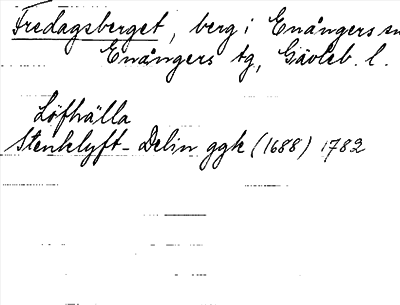 Fredagsberget, berg i Enångers sn
Enångers tg, Gävleb. l.
Löfhälla
Stenklyft - Delin ggk (1688) 1782